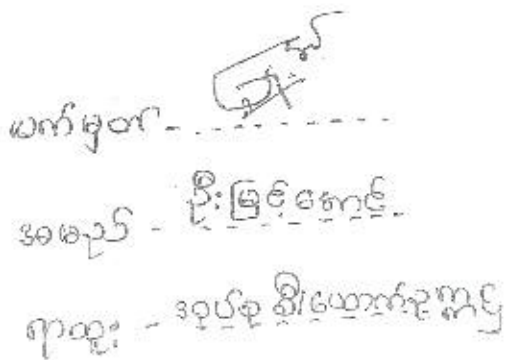 လက်မှတ် -
အမည် - ဦးမြင့်အောင်
ရာထူး - အုပ်စု ဦး